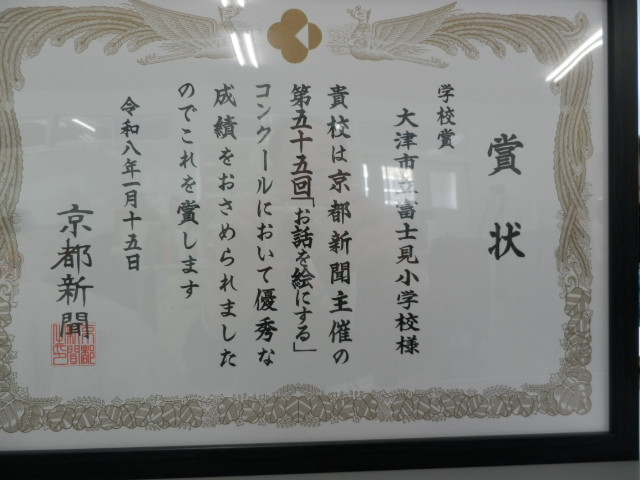 賞状
学校賞
大津市立富士見小学校様
貴校は京都新聞主催の
第五十五回「お話を絵にする」
コンクールにおいて優秀な
成績をおさめられました
のでこれを賞します
令和八年一月十五日
京都新聞